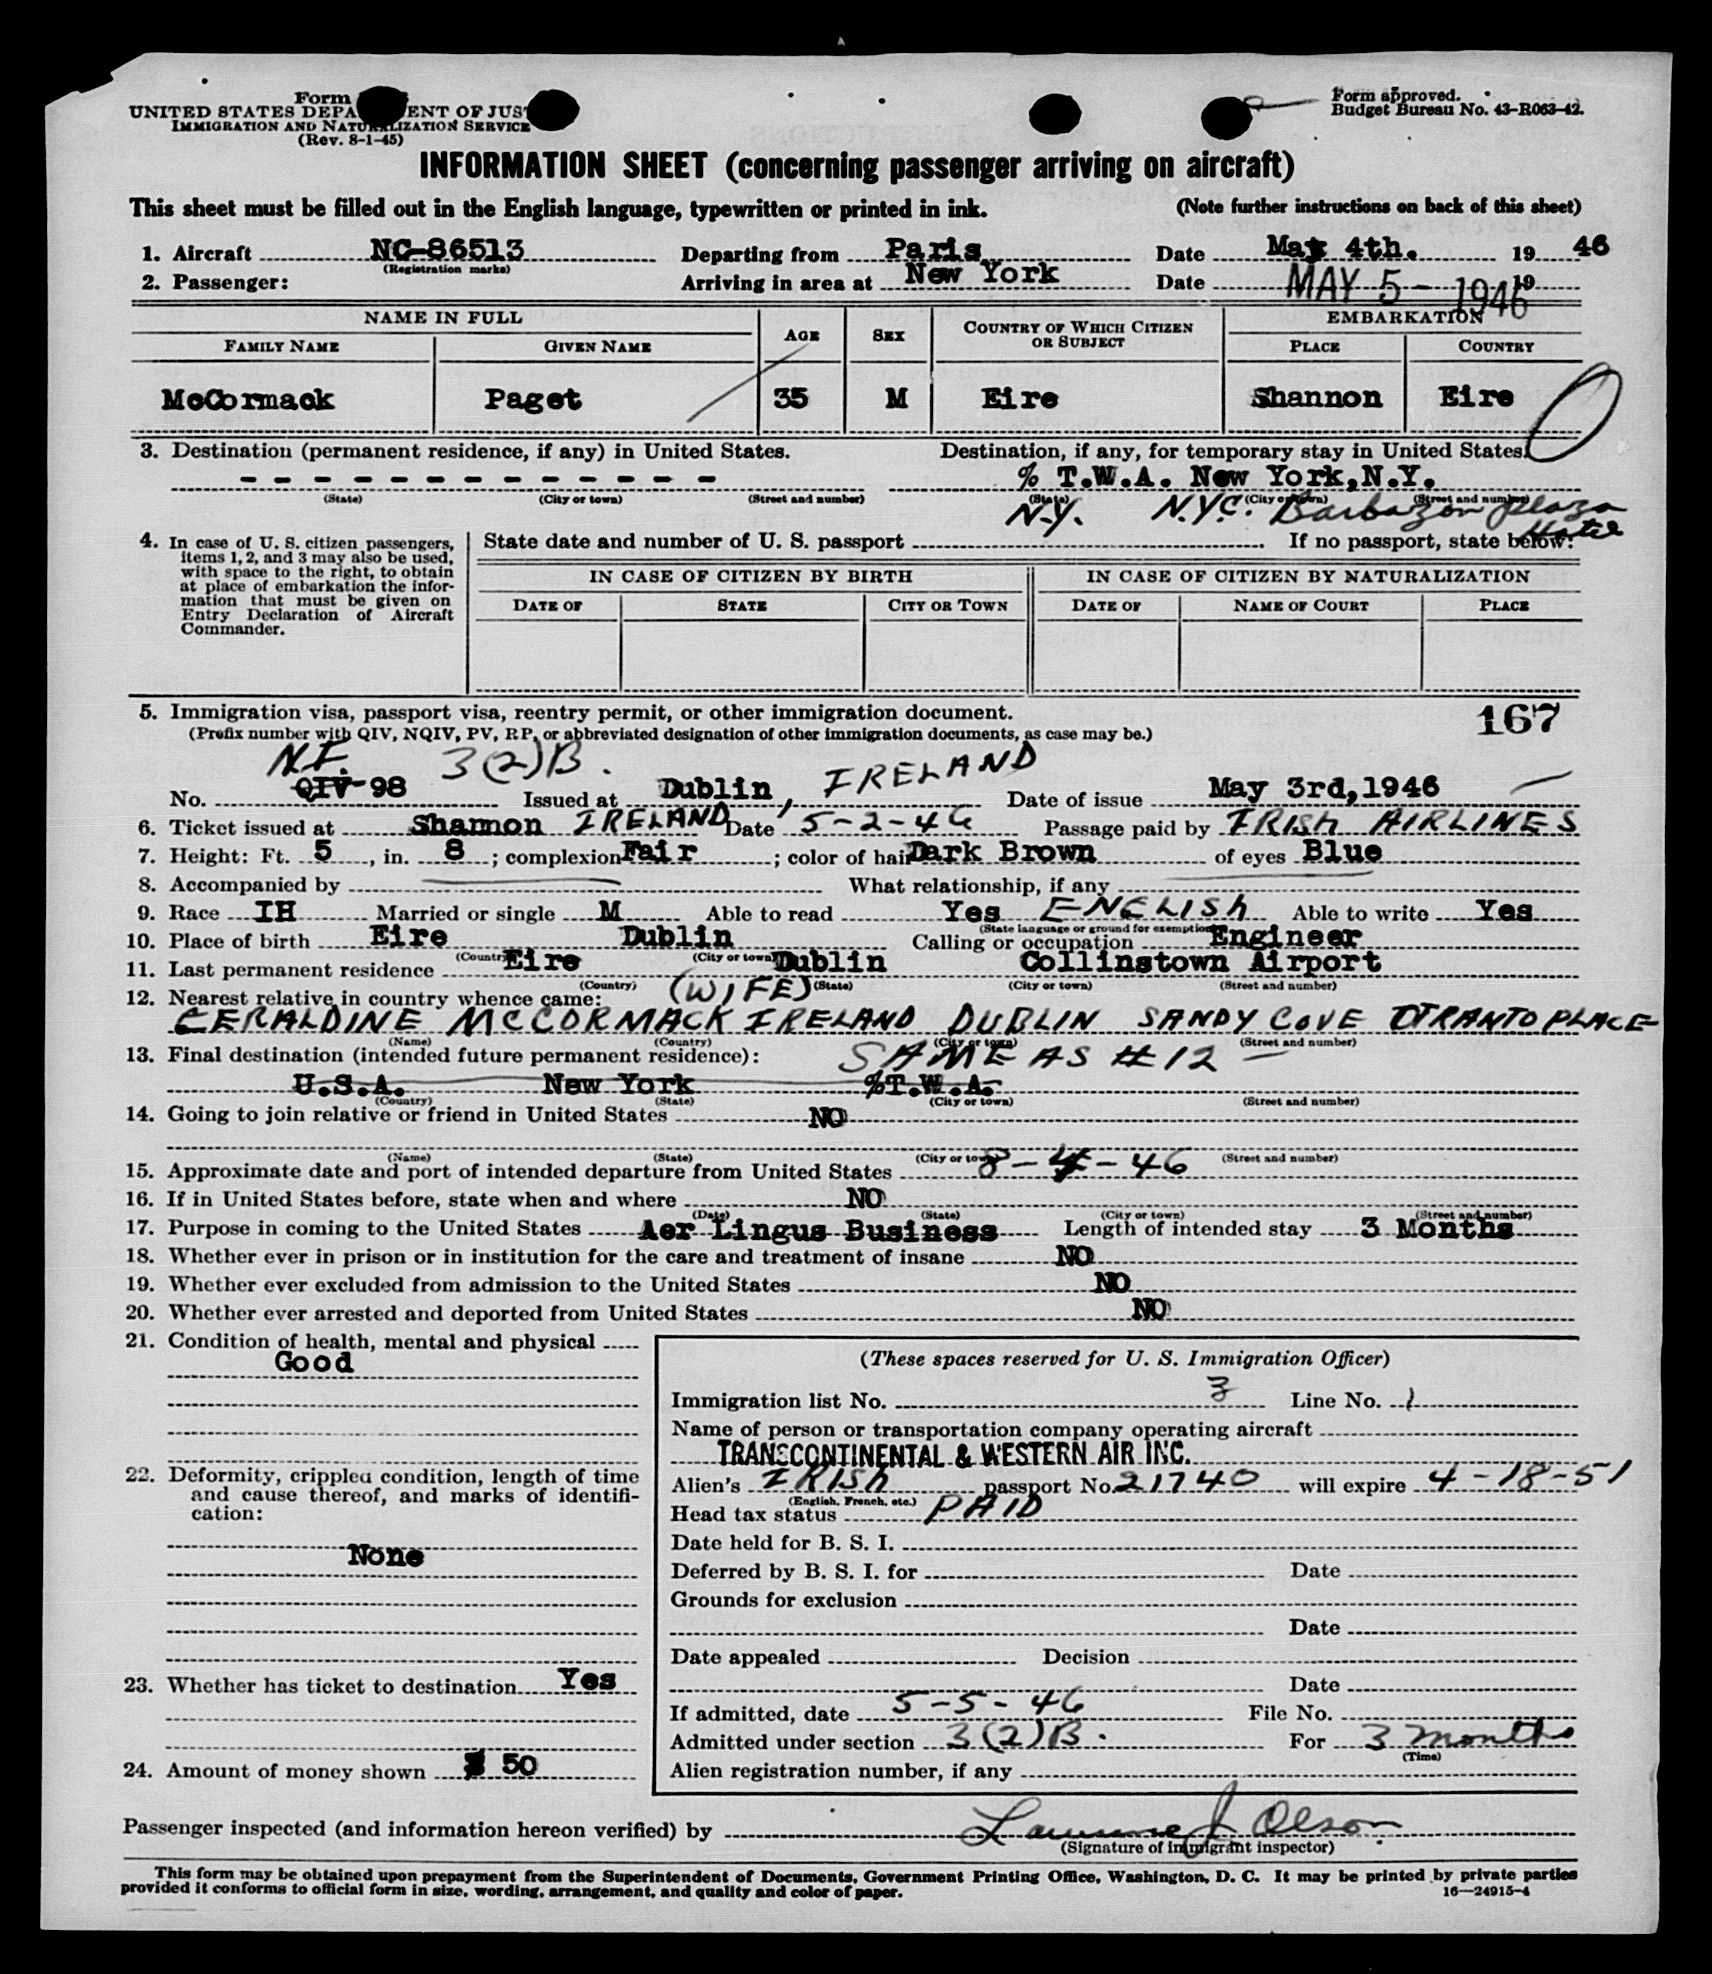 Form
UNITED STATES DEPA ENT OF JUST
IMMIGRATION AND NATURALIZATION SERVICE
(Rev. 8-1-45)
Form approved.
Budget Bureau No. 43-R063-42.
INFORMATION SHEET (concerning passenger arriving on aircraft)
This sheet must be filled out in the English language, typewritten or printed in ink. (Note further instructions on back of this sheet)
1. Aircraft NC-86513 Departing from Paris Date May 4th. 1946
(Registration marks)
2. Passenger: Arriving in area at New York Date MAY 5 - 1946 19
NAME IN FULL AGE SEX COUNTRY OF WHICH CITIZEN OR SUBJECT EMBARKATION
FAMILY NAME GIVEN NAME PLACE COUNTRY
McCormack Paget 35 M Eire Shannon Eire
3. Destination (permanent residence, if any) in United States. Destination, if any, for temporary stay in United States.
- - - - - - - - - - - - - % T.W.A. New York,N.Y.
(State) (City or town) (Street and number) (State) (City or town) (Street and number)
N.Y. N.Y.C. Barbazon plaza Hotel
4. In case of U. S. citizen passengers, items 1, 2, and 3 may also be used, with space to the right, to obtain at place of embarkation the information that must be given on Entry Declaration of Aircraft Commander.
State date and number of U. S. passport If no passport, state below:
IN CASE OF CITIZEN BY BIRTH IN CASE OF CITIZEN BY NATURALIZATION
DATE OF STATE CITY OR TOWN DATE OF NAME OF COURT PLACE
5. Immigration visa, passport visa, reentry permit, or other immigration document. 167
(Prefix number with QIV, NQIV, PV, RP, or abbreviated designation of other immigration documents, as case may be.)
N.I. 3(2)B.
No. QIV-98 Issued at Dublin, IRELAND Date of issue May 3rd,1946
6. Ticket issued at Shannon IRELAND Date 5-2-46 Passage paid by IRISH AIRLINES
7. Height: Ft. 5, in. 8; complexion Fair; color of hair Dark Brown of eyes Blue
8. Accompanied by What relationship, if any
9. Race IH Married or single M Able to read Yes ENGLISH Able to write Yes
(State language or ground for exemption)
10. Place of birth Eire Dublin Calling or occupation Engineer
(Country) (City or town)
11. Last permanent residence Eire Dublin Collinstown Airport
(Country) (State) (City or town) (Street and number)
12. Nearest relative in country whence came: (WIFE)
GERALDINE MCCORMACK IRELAND DUBLIN SANDY COVE OTRANTO PLACE
(Name) (Country) (City or town) (Street and number)
13. Final destination (intended future permanent residence): SAME AS #12 —
U.S.A. New York %T.W.A.
(Country) (State) (City or town) (Street and number)
14. Going to join relative or friend in United States NO
(Name) (State) (City or town) (Street and number)
15. Approximate date and port of intended departure from United States 8-4-46
16. If in United States before, state when and where NO
(Date) (State) (City or town) (Street and number)
17. Purpose in coming to the United States Aer Lingus Business Length of intended stay 3 Months
18. Whether ever in prison or in institution for the care and treatment of insane NO
19. Whether ever excluded from admission to the United States NO
20. Whether ever arrested and deported from United States NO
21. Condition of health, mental and physical
Good
22. Deformity, crippled condition, length of time and cause thereof, and marks of identification:
None
23. Whether has ticket to destination Yes
24. Amount of money shown $ 50
(These spaces reserved for U. S. Immigration Officer)
Immigration list No. 3 Line No. 1
Name of person or transportation company operating aircraft
TRANSCONTINENTAL & WESTERN AIR INC.
Alien's IRISH passport No. 21740 will expire 4-18-51
(English, French, etc.)
Head tax status PAID
Date held for B. S. I.
Deferred by B. S. I. for Date
Grounds for exclusion
Date
Date appealed Decision
Date
If admitted, date 5-5-46 File No.
Admitted under section 3(2)B. For 3 months
(Time)
Alien registration number, if any
Passenger inspected (and information hereon verified) by Lawrence J Olson
(Signature of immigrant inspector)
This form may be obtained upon prepayment from the Superintendent of Documents, Government Printing Office, Washington, D. C. It may be printed by private parties
provided it conforms to official form in size, wording, arrangement, and quality and color of paper. 16—24915-4